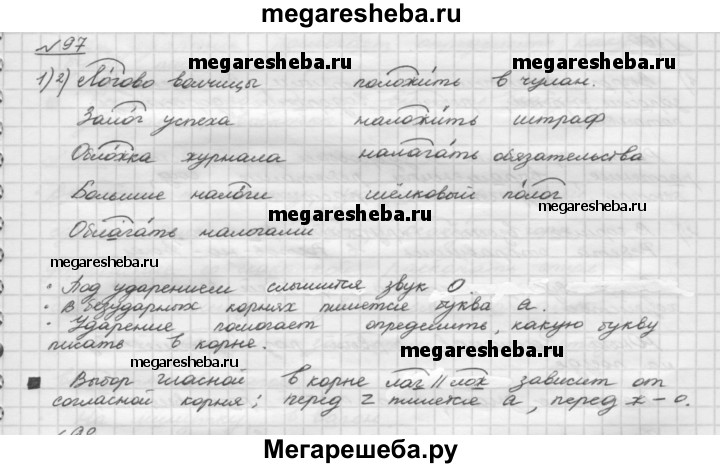 megaresheba.ru
№97
megaresheba.ru
megaresheba.ru
1)2) Ло́гово волчицы положи́ть в чулан.
Зало́г успеха наложи́ть штраф
Обло́жка журнала налага́ть обязательства
Большие нало́ги шёлковый по́лог
megaresheba.ru
megaresheba.ru
Облага́ть налогами
megaresheba.ru
· Под ударением слышится звук О.
· В безударных корнях пишется буква а.
· Ударение помогает определить, какую букву
писать в корне.
megaresheba.ru
megaresheba.ru
Выбор гласной в корне лаг // лож зависит от
согласной корня; перед г пишется а, перед ж – о.
Мегарешеба.ру